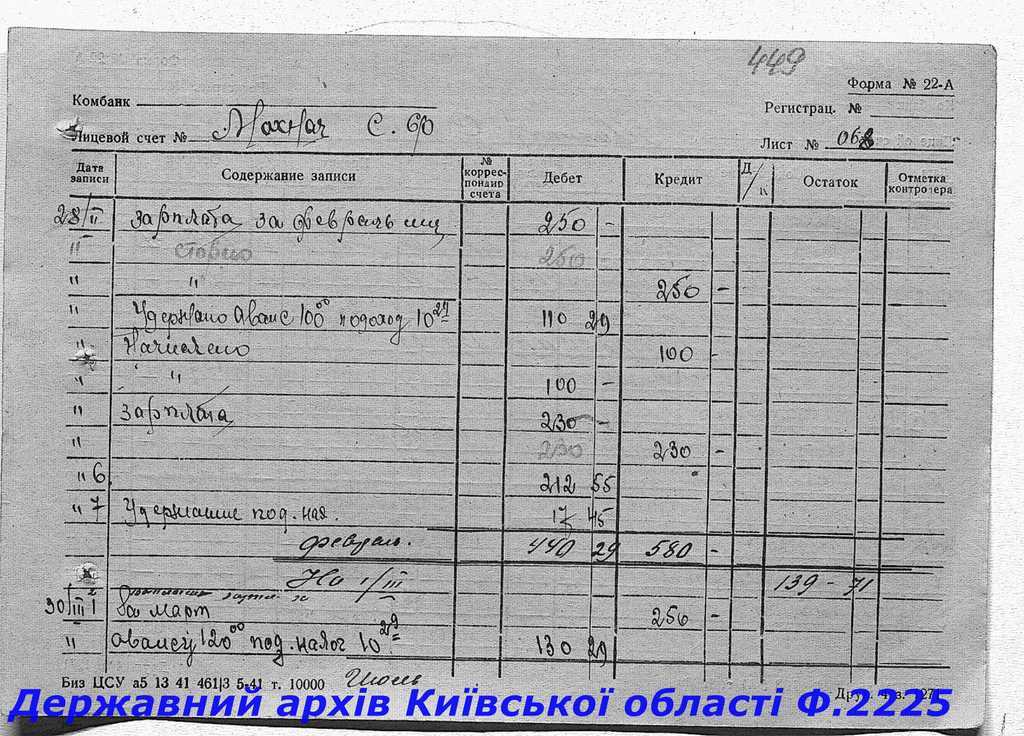 449
Форма № 22-А
Комбанк
Регистрац. №
Лицевой счет № Махнач С. 60
Лист № 068
Дата записи Содержание записи № коррес-пондир счета Дебет Кредит Д/К Остаток Отметка контролера
28/II Зарплата за февраль мц 250 -
" сторно 250 -
" " 250 -
" Удержано Аванс 100 00 подоход 10 29 110 29
" Начислено 100 -
" " 100 -
" Зарплата 230 -
" 230 230 -
" 6 212 55
" 7 Удержание под. нал. 17 45
февраль. 440 29 580 -
На 1/III 139 - 71
30/III 1 За март 250 -
" авансу 120 00 под. налог 10 29 130 29
Биз ЦСУ а5 13 41 461|3 5-41 т. 10000
Державний архів Київської області Ф.2225